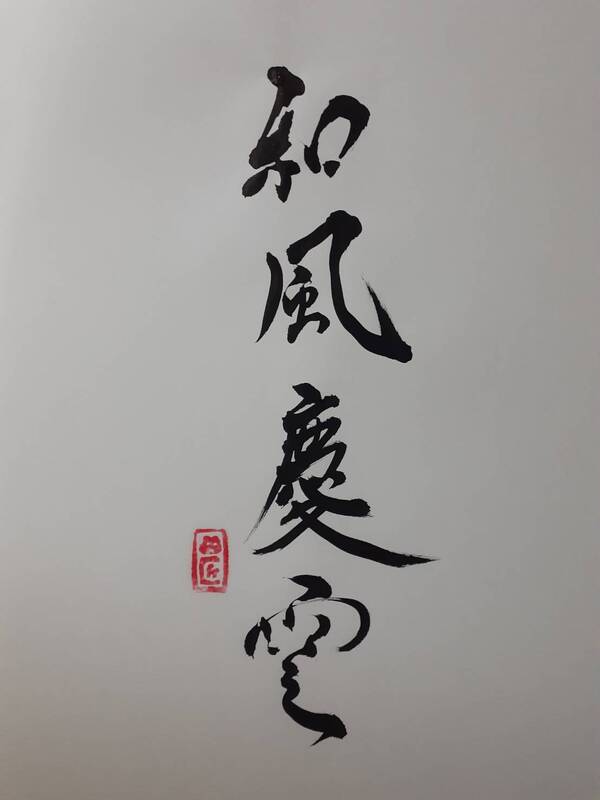 和風慶雲